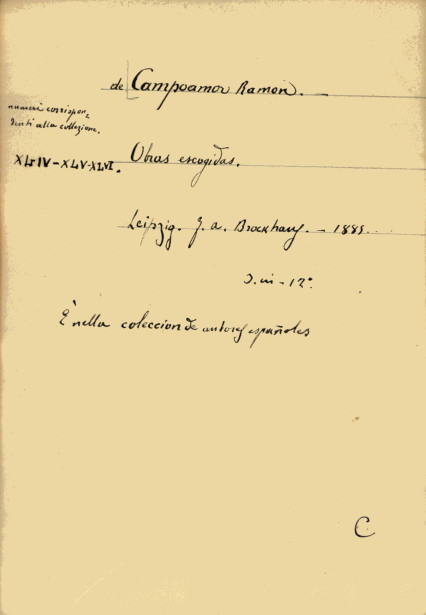 de Campoamor Ramon. —
numeri corrispon=
denti alla collezione.
XLIV-XLV-XLVI.
Obras escogidas.
Leipzig. F. A. Brockhaus. — 1885.
3. in-12°.
È nella coleccion de autores españoles
C